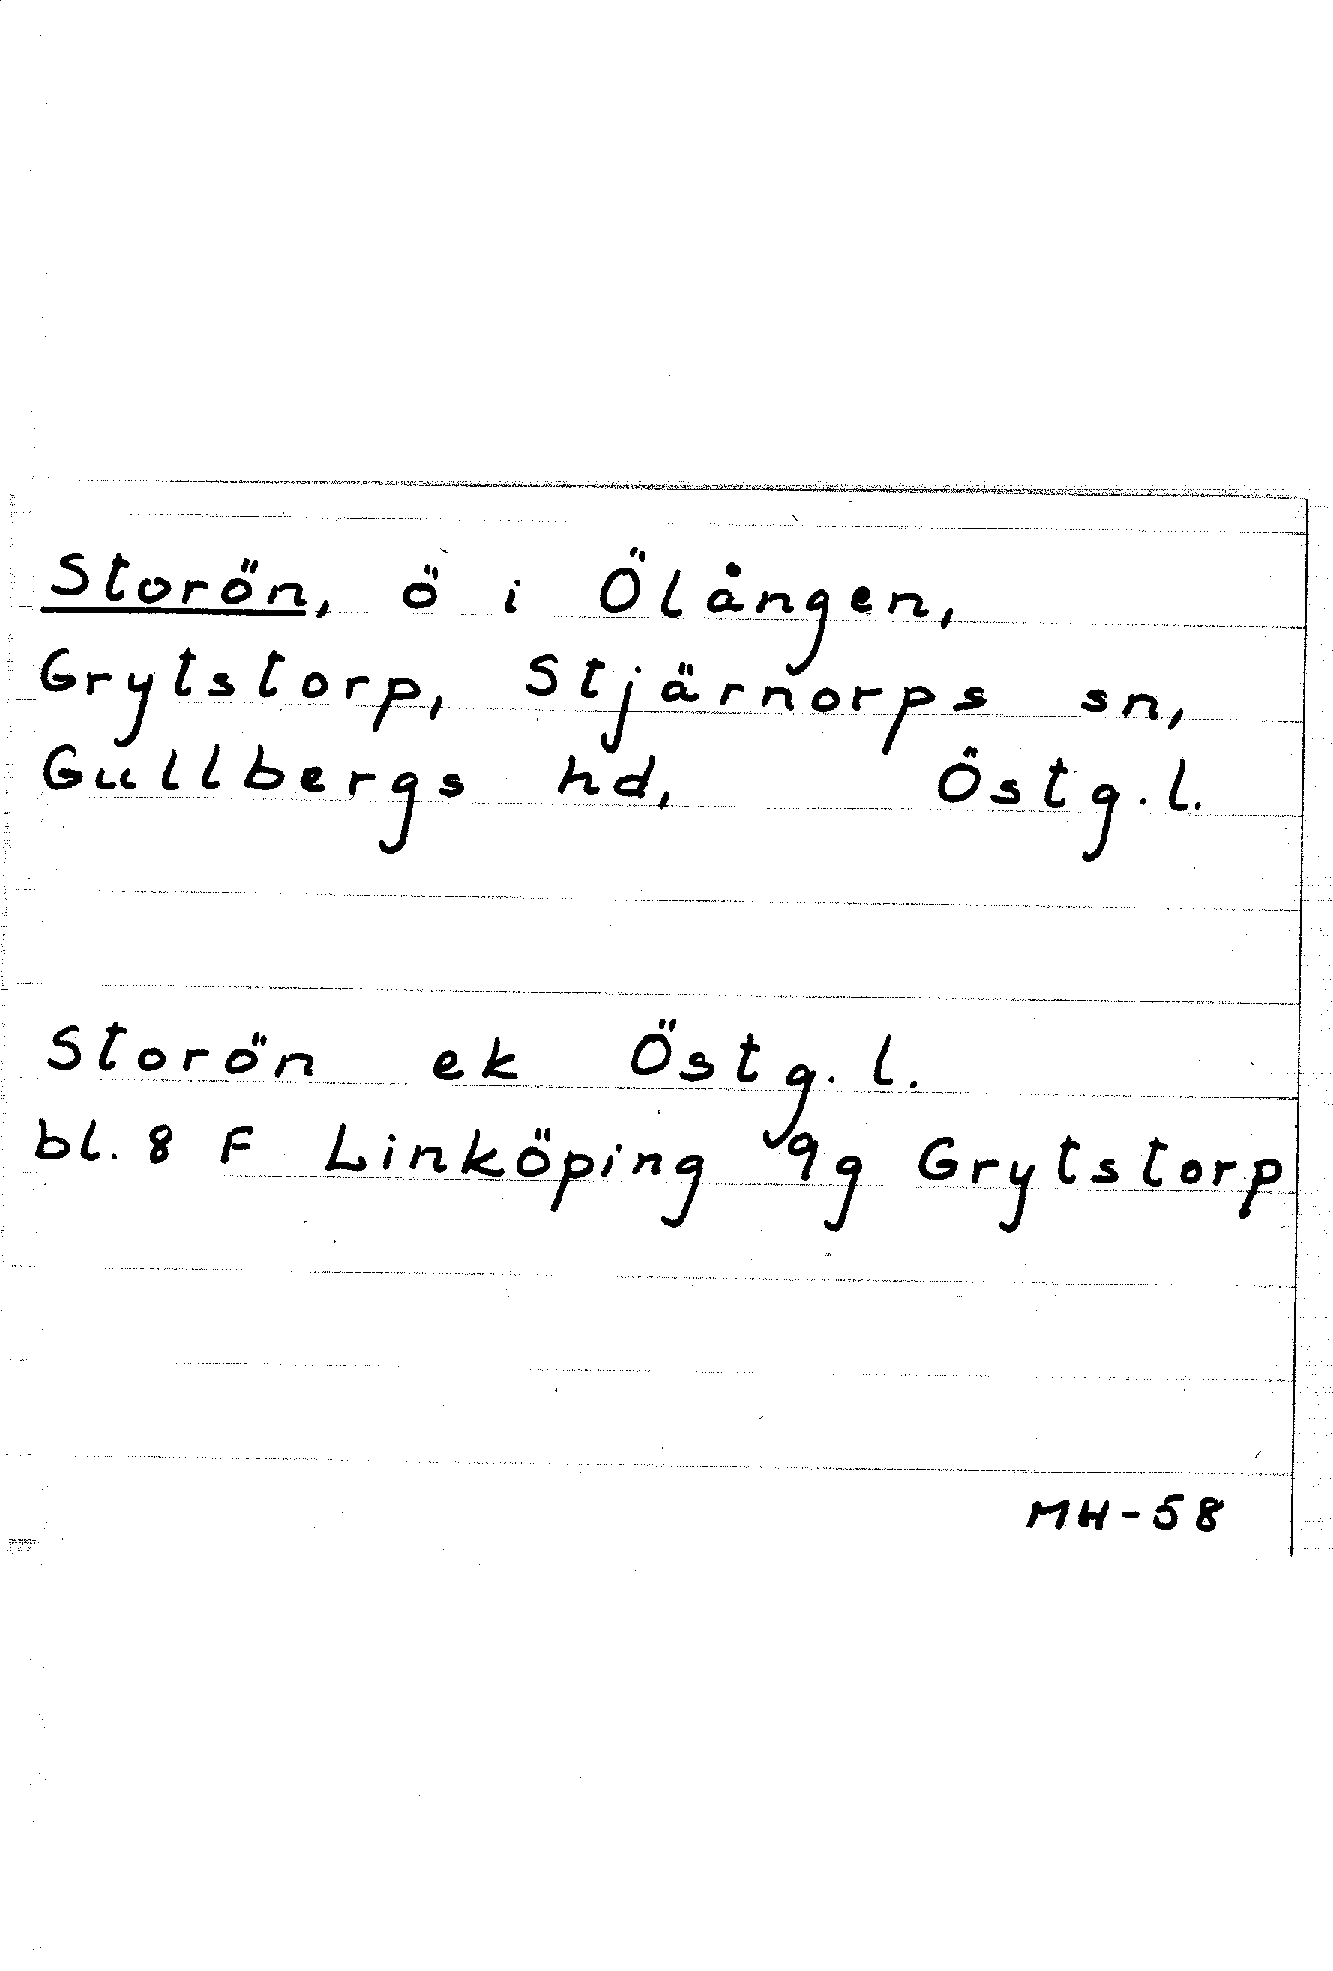 Storön, ö i Ölången,
Grytstorp, Stjärnorps sn,
Gullbergs hd, Östg.l.
Storön ek Östg.l.
bl. 8 F Linköping 9g Grytstorp
MH-58